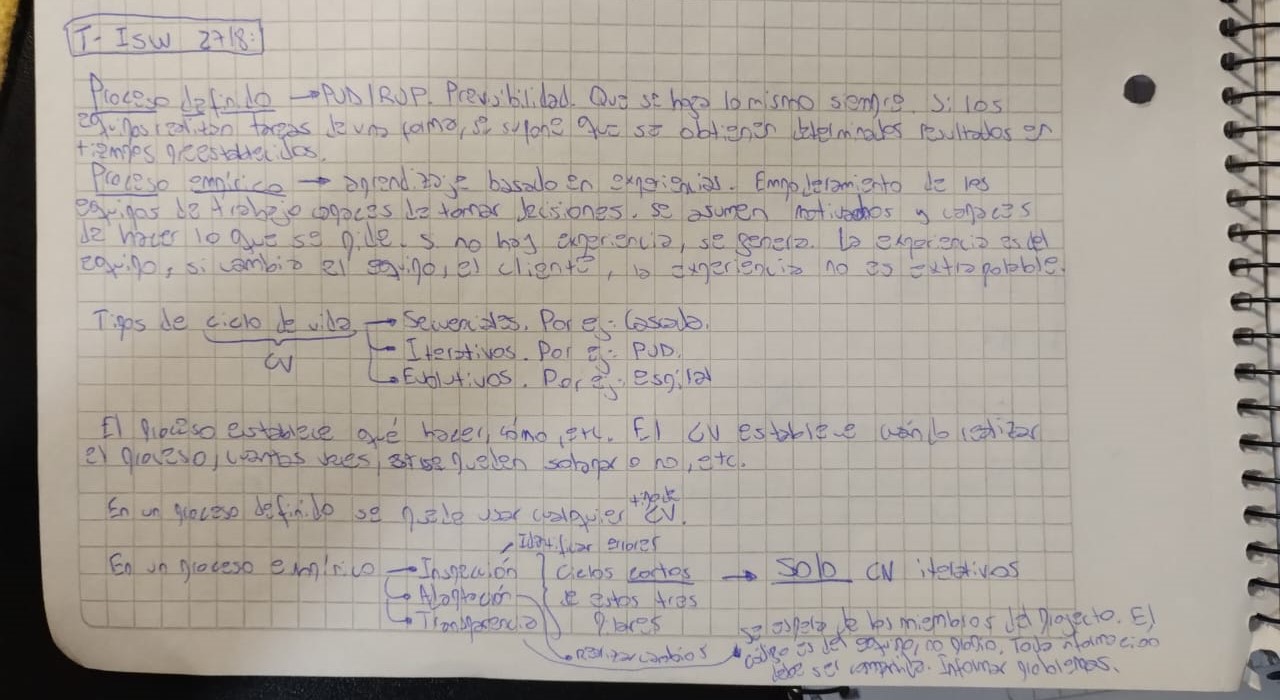 T- ISW 27/8:
Proceso definido → PUD/RUP. Previsibilidad. Que se haga lo mismo siempre. Si los
equipos realizan tareas de una forma, se supone que se obtienen determinados resultados en
tiempos preestablecidos.
Proceso empírico → aprendizaje basado en experiencias. Empoderamiento de los
equipos de trabajo capaces de tomar decisiones. Se asumen motivados y capaces
de hacer lo que se pide. Si no hay experiencia, se genera. La experiencia es del
equipo, si cambia el equipo, el cliente, la experiencia no es extrapolable.
Tipos de ciclo de vida → Secuenciales. Por ej: Cascada.
CV → Iterativos. Por ej: PUD.
→ Evolutivos. Por ej: espiral
El proceso establece qué hacer, cómo, etc. El CV establece cuándo realizar
el proceso, cuantas veces, si se pueden solapar o no, etc.
En un proceso definido se puede usar cualquier tipo de CV.
Identificar errores
En un proceso empírico → Inspección } Ciclos cortos → Solo CV iterativos
→ Adaptación de estos tres
→ Transparencia pilares
Realizar cambios
Se espera de los miembros del proyecto. El
código es del equipo, no propio. Toda información
debe ser compartida. Informar problemas.